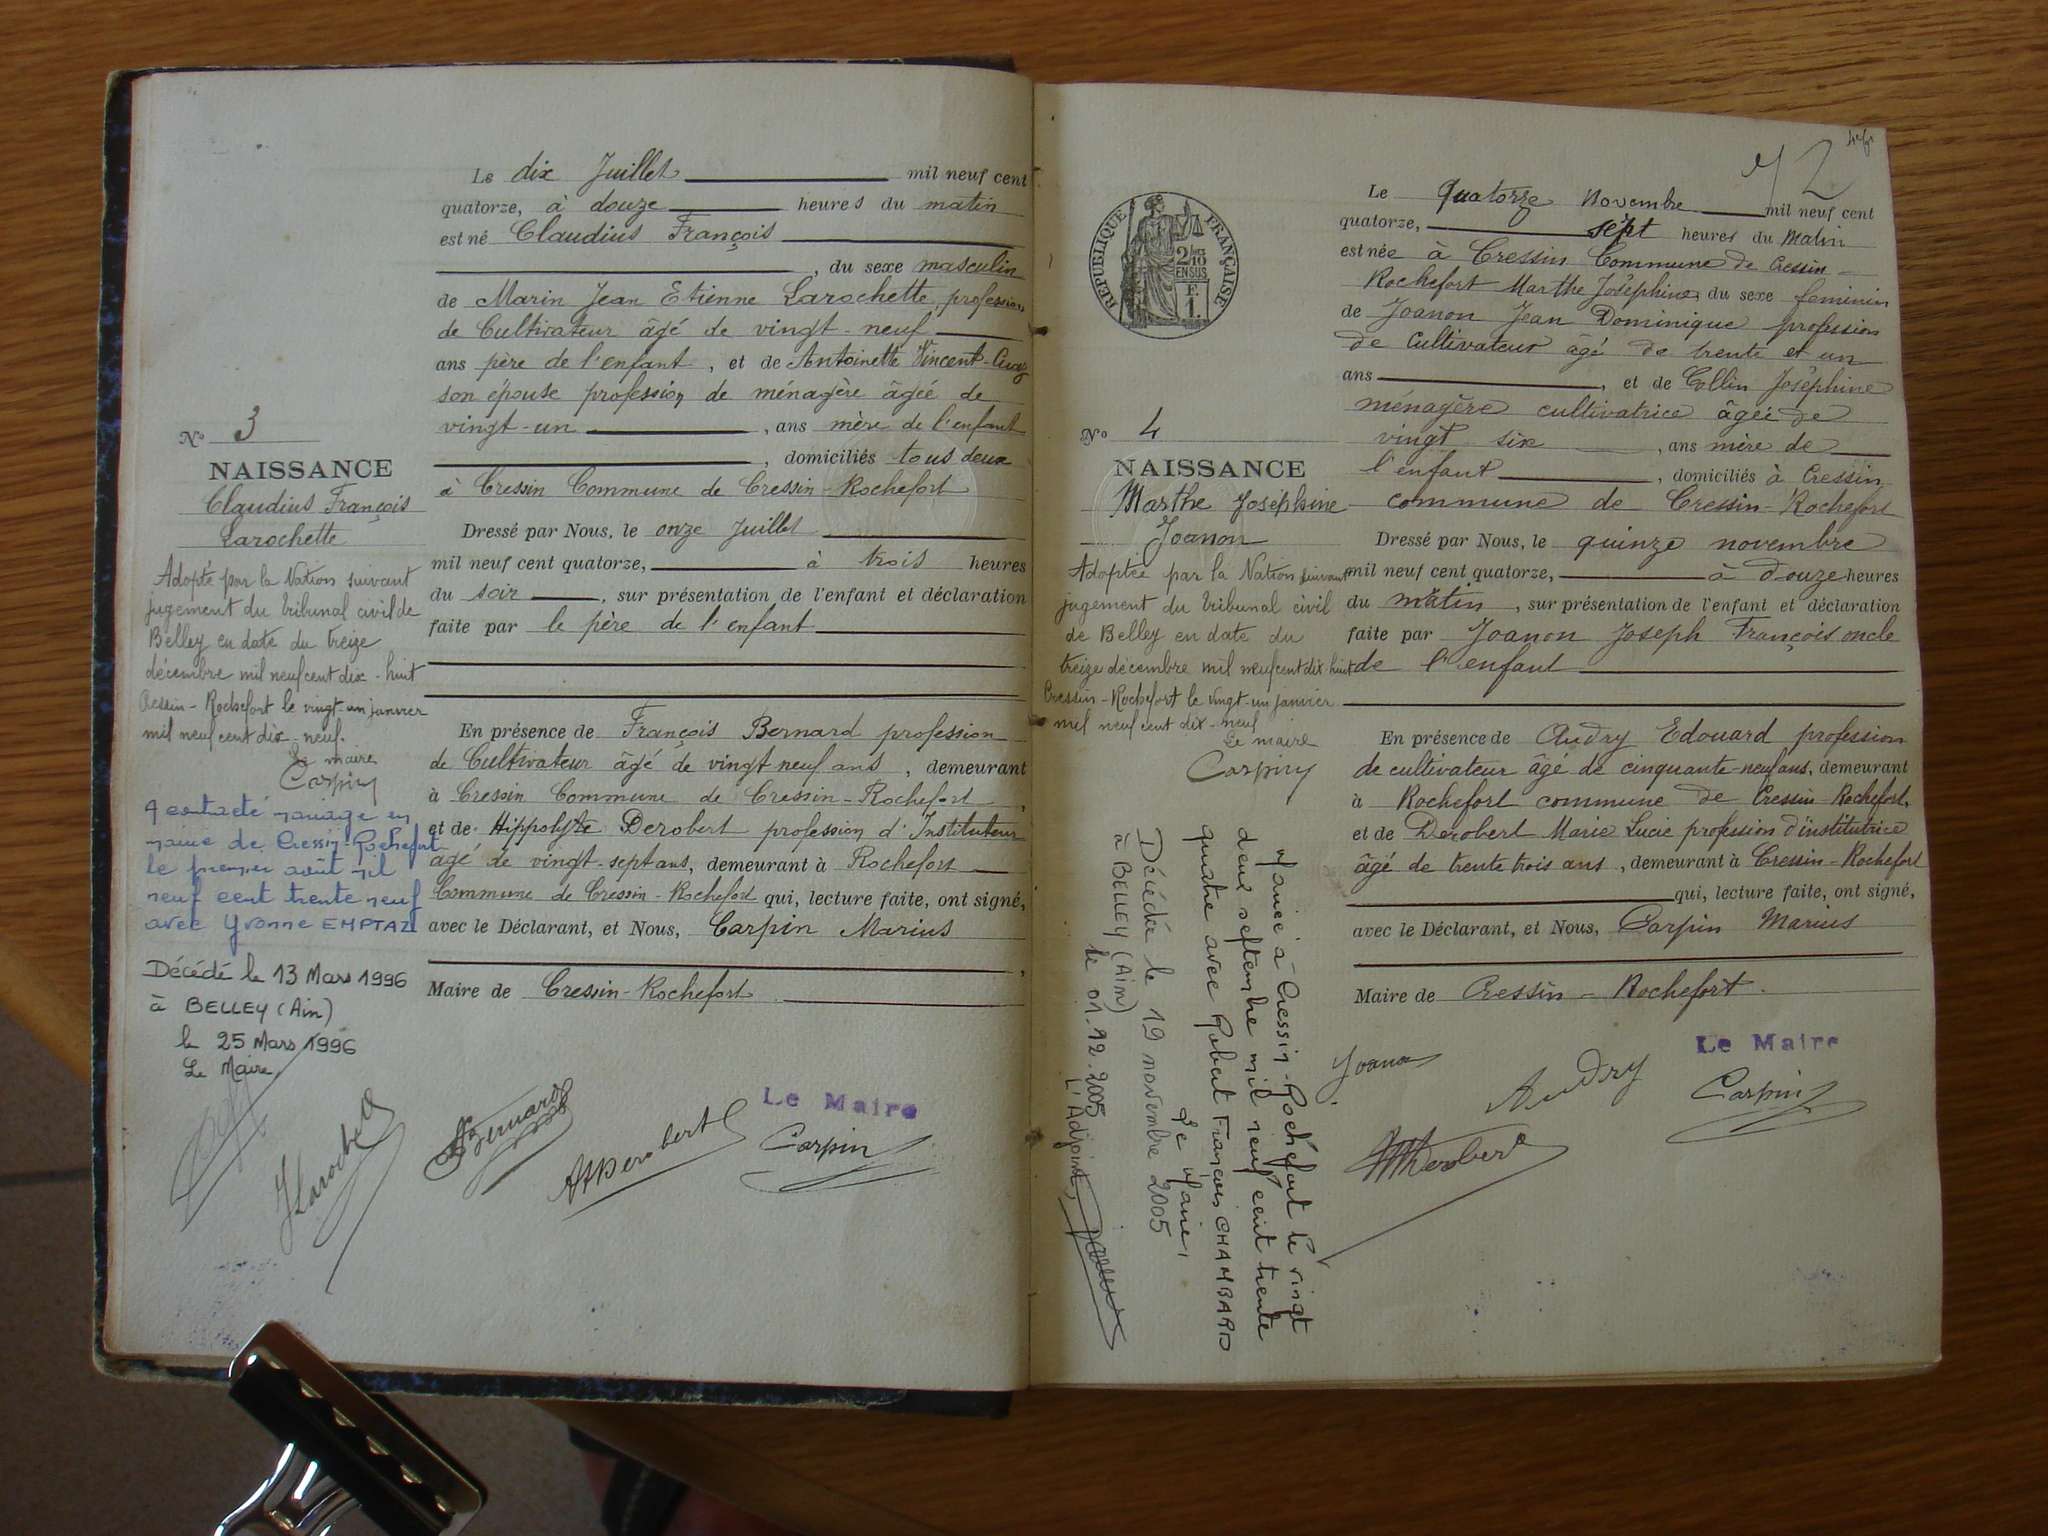 Le dix Juillet mil neuf cent
quatorze, à douze heures du matin
est né Claudius François
, du sexe masculin
de Marin Jean Etienne Larochette, profession
de Cultivateur âgé de vingt-neuf
ans père de l'enfant, et de Antoinette Vincent-Cuaz
son épouse profession de ménagère âgée de
vingt-un, ans mère de l'enfant
, domiciliés tous deux
à Cressin Commune de Cressin-Rochefort
Dressé par Nous, le onze Juillet
mil neuf cent quatorze, à trois heures
du soir, sur présentation de l'enfant et déclaration
faite par le père de l'enfant
En présence de François Bernard profession
de Cultivateur âgé de vingt neuf ans, demeurant
à Cressin Commune de Cressin-Rochefort,
et de Hippolyte Derobert profession d'Instituteur
âgé de vingt-sept ans, demeurant à Rochefort
Commune de Cressin-Rochefort qui, lecture faite, ont signé,
avec le Déclarant, et Nous, Carpin Marius
,
Maire de Cressin-Rochefort
Nº 3
NAISSANCE
Claudius François
Larochette
Adopté par la Nation suivant
jugement du tribunal civil de
Belley en date du treize
décembre mil neuf cent dix-huit
Cressin-Rochefort le vingt-un janvier
mil neuf cent dix-neuf.
Le maire
Carpin
A contracté mariage en
mairie de Cressin-Rochefort
le premier août mil
neuf cent trente neuf
avec Yvonne EMPTAZ
Décédé le 13 Mars 1996
à BELLEY (Ain)
le 25 Mars 1996
Le Maire,
JLarochette
Bernard
Derobert
Le Maire
Carpin
12
RÉPUBLIQUE FRANÇAISE
2/10
EN SUS
F.
1.
Le Quatorze Novembre mil neuf cent
quatorze, sept heures du Matin
est née à Cressin Commune de Cressin-
Rochefort Marthe Joséphine, du sexe feminin
de Joanon Jean Dominique profession
de Cultivateur âgé de trente et un
ans, et de Collin Joséphine
ménagère cultivatrice âgée de
vingt six, ans mère de
l'enfant, domiciliés à Cressin
commune de Cressin-Rochefort
Dressé par Nous, le quinze novembre
mil neuf cent quatorze, à douze heures
du matin, sur présentation de l'enfant et déclaration
faite par Joanon Joseph François oncle
de l'enfant
En présence de Audry Edouard profession
de cultivateur âgé de cinquante-neuf ans, demeurant
à Rochefort commune de Cressin Rochefort,
et de Derobert Marie Lucie profession d'institutrice
âgé de trente trois ans, demeurant à Cressin-Rochefort
qui, lecture faite, ont signé,
avec le Déclarant, et Nous, Carpin Marius
Maire de Cressin-Rochefort.
Nº 4
NAISSANCE
Marthe Joséphine
Joanon
Adoptée par la Nation suivant
jugement du tribunal civil
de Belley en date du
treize décembre mil neuf cent dix-huit
Cressin-Rochefort le vingt-un janvier
mil neuf cent dix-neuf
Le maire
Carpin
Mariée à Cressin-Rochefort le vingt
deux septembre mil neuf cent trente
quatre avec Robert François CHAMBARD
Le Maire,
Décédée le 19 novembre 2005
à BELLEY (Ain)
le 01.12.2005
L'Adjoint,
Joanon
Audry
Derobert
Le Maire
Carpin